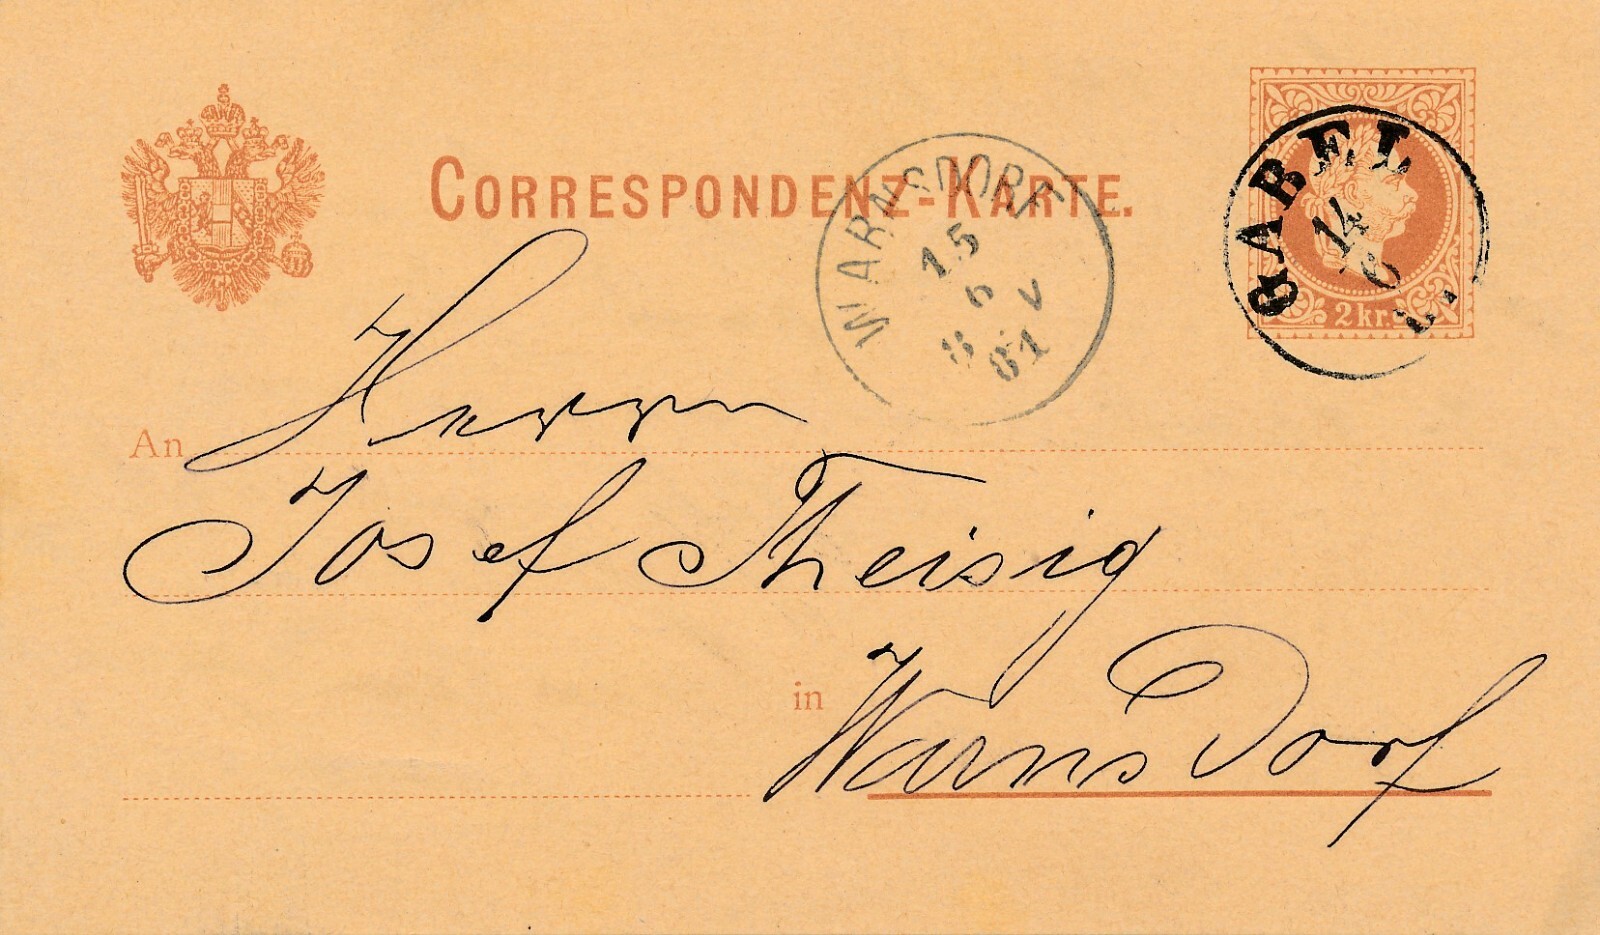 CORRESPONDENZ-KARTE.
WARNSDORF
15
6 V
8 81
GABEL
14
6
2 kr.
An Herrn
Josef Theisig
in Warnsdorf